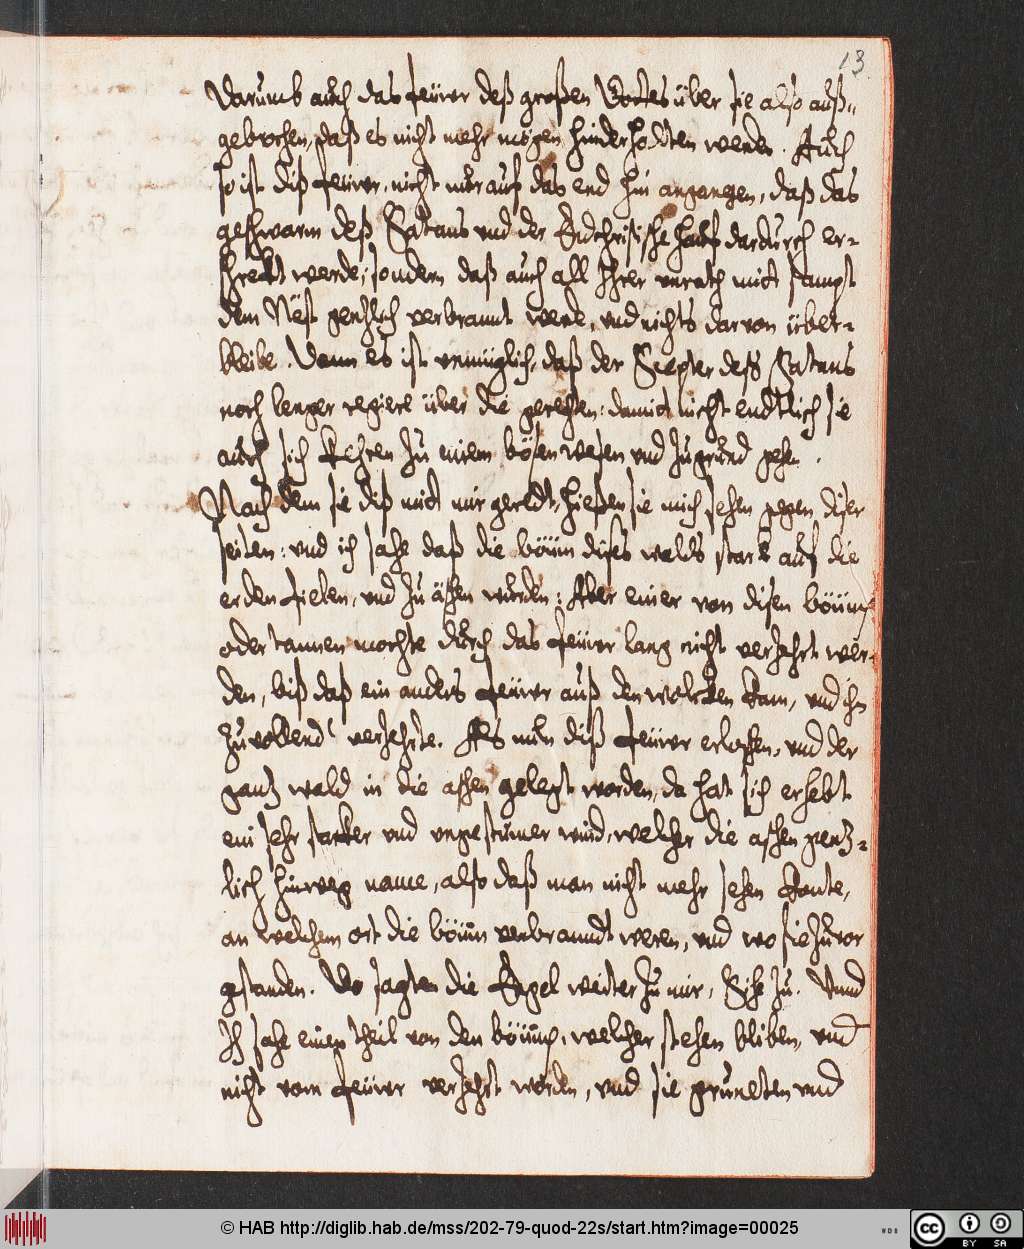 13.
Darumb auch das feüwr deß großen Gottes über sie also auß-
gebrochen, daß es nicht mehr mögen hinderhalten werden. Auch
so ist diß feüwr, nicht nur auf das end hin angangen, daß das
geschwarm deß Satans und der Endchristische hauf dardurch er-
schreckt werde; sondern daß auch all Ihrer unrath mitt sampt
dem Näst genzlich verbrannt werde, und nichts darvon über-
bleibe. Dann es ist unmüglich, daß der Scepter deß Satans
noch lenger regiere über die gerechten: damitt nicht endtlich sie
auch sich kehren zu einem bösen wesen und zugrund gehen.
Nach dem sie diß mitt mir geredt, hießen sie mich sehen gegen diser
seiten: und ich sahe daß die böüm dises walds starck auf die
erden fielen, und zu äschen wurden: Aber einer von disen böümen
oder tannen mochte durch das feüwr lang nicht verzehrt wer-
den, biß daß ein anders feüwr auß den wolcken kam, und ihn
zuvollend verzehrte. Als nun diß feüwr erloschen, und der
ganz wald in die aschen gelegt worden, da hat sich erhebt
ein sehr starcker und ungestümer wind, welcher die aschen genz-
lich hinweg name, also daß man nicht mehr sehen konte,
an welchem ort die böüm verbranndt weren, und wo sie zuvor
gestanden. Do sagten die Engel weiter zu mir, Sihe zu. Unnd
Ich sahe einen theil von den böümen, welcher stehen bliben, und
nicht vom feüwr verzehrt worden, und sie gruneten und
© HAB http://diglib.hab.de/mss/202-79-quod-22s/start.htm?image=00025
WDB
CC BY SA